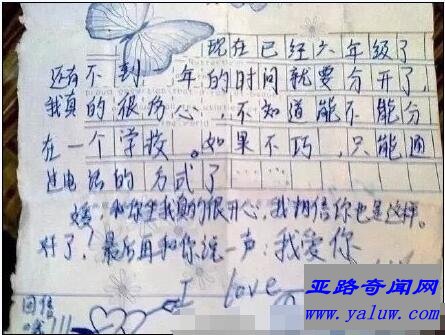 现在已经六年级了
还有不到一年的时间就要分开了，
我真的很伤心，不知道能不能分
在一个学校。如果不巧，只能通
过电话的方式了……
和你坐我真的很开心，我相信你也是这样。
好了！最后再和你说一声：我爱你
I love
回信
亚路奇闻网
www.yaluw.com